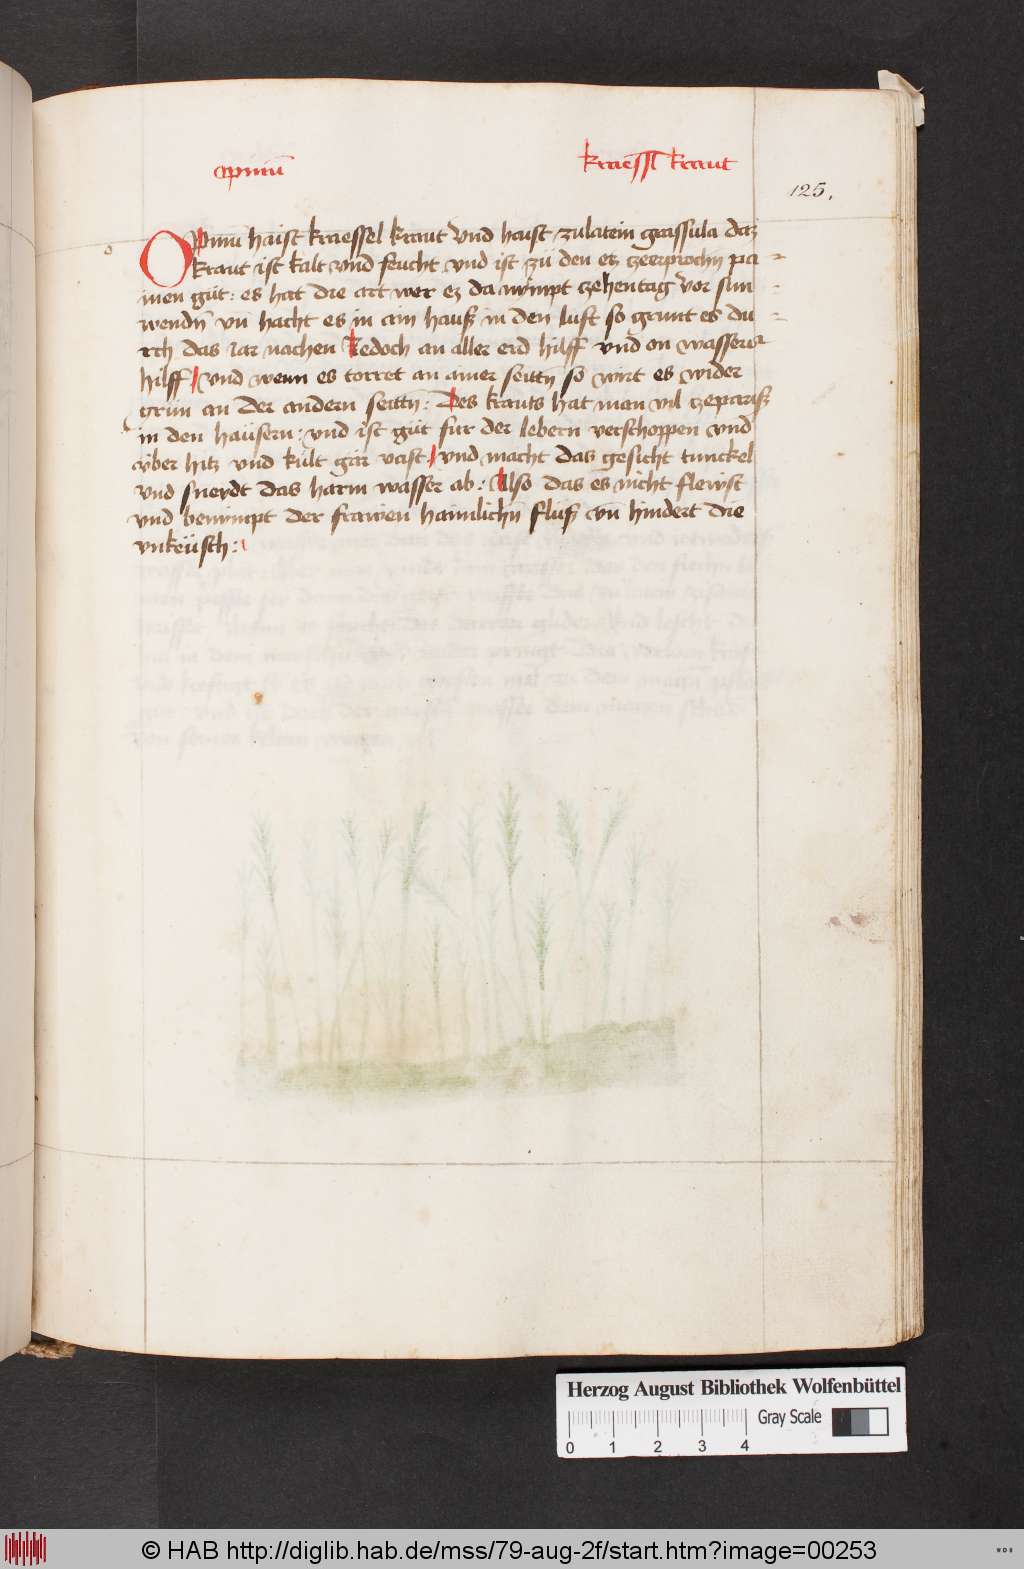 opiniū kraessl kraut
125.
o
Opiniū haist kraessel kraut vnd haist zulatein grassula daz
kraut ist kalt vnd feucht vnd ist zü den etz zeerprochn̄ pa-
inen güt : es hat die art wer ez da nÿmpt zehentag vor sun-
wendn̄ vn̄ hacht es in ain hauß in den luft so grünt es du-
rch das iar nachen Jedoch an aller erd hilff vnd on wassers
hilff vnd wenn es torret an ainer seittn̄ so wirt es wider
grün an der andern seittn̄ : Des krauts hat man vil zepariß
in den haüsern : vnd ist güt für der lebern verschoppen vnd
über hitz vnd kült gar vast vnd macht das gesicht tunckel
vnd sneydt das harm wasser ab : Also das es nicht flewst
vnd benÿmpt der frawen haimlichn̄ fluß vn̄ hindert die
vnkeüsch :
Herzog August Bibliothek Wolfenbüttel
Gray Scale
0 1 2 3 4
© HAB http://diglib.hab.de/mss/79-aug-2f/start.htm?image=00253